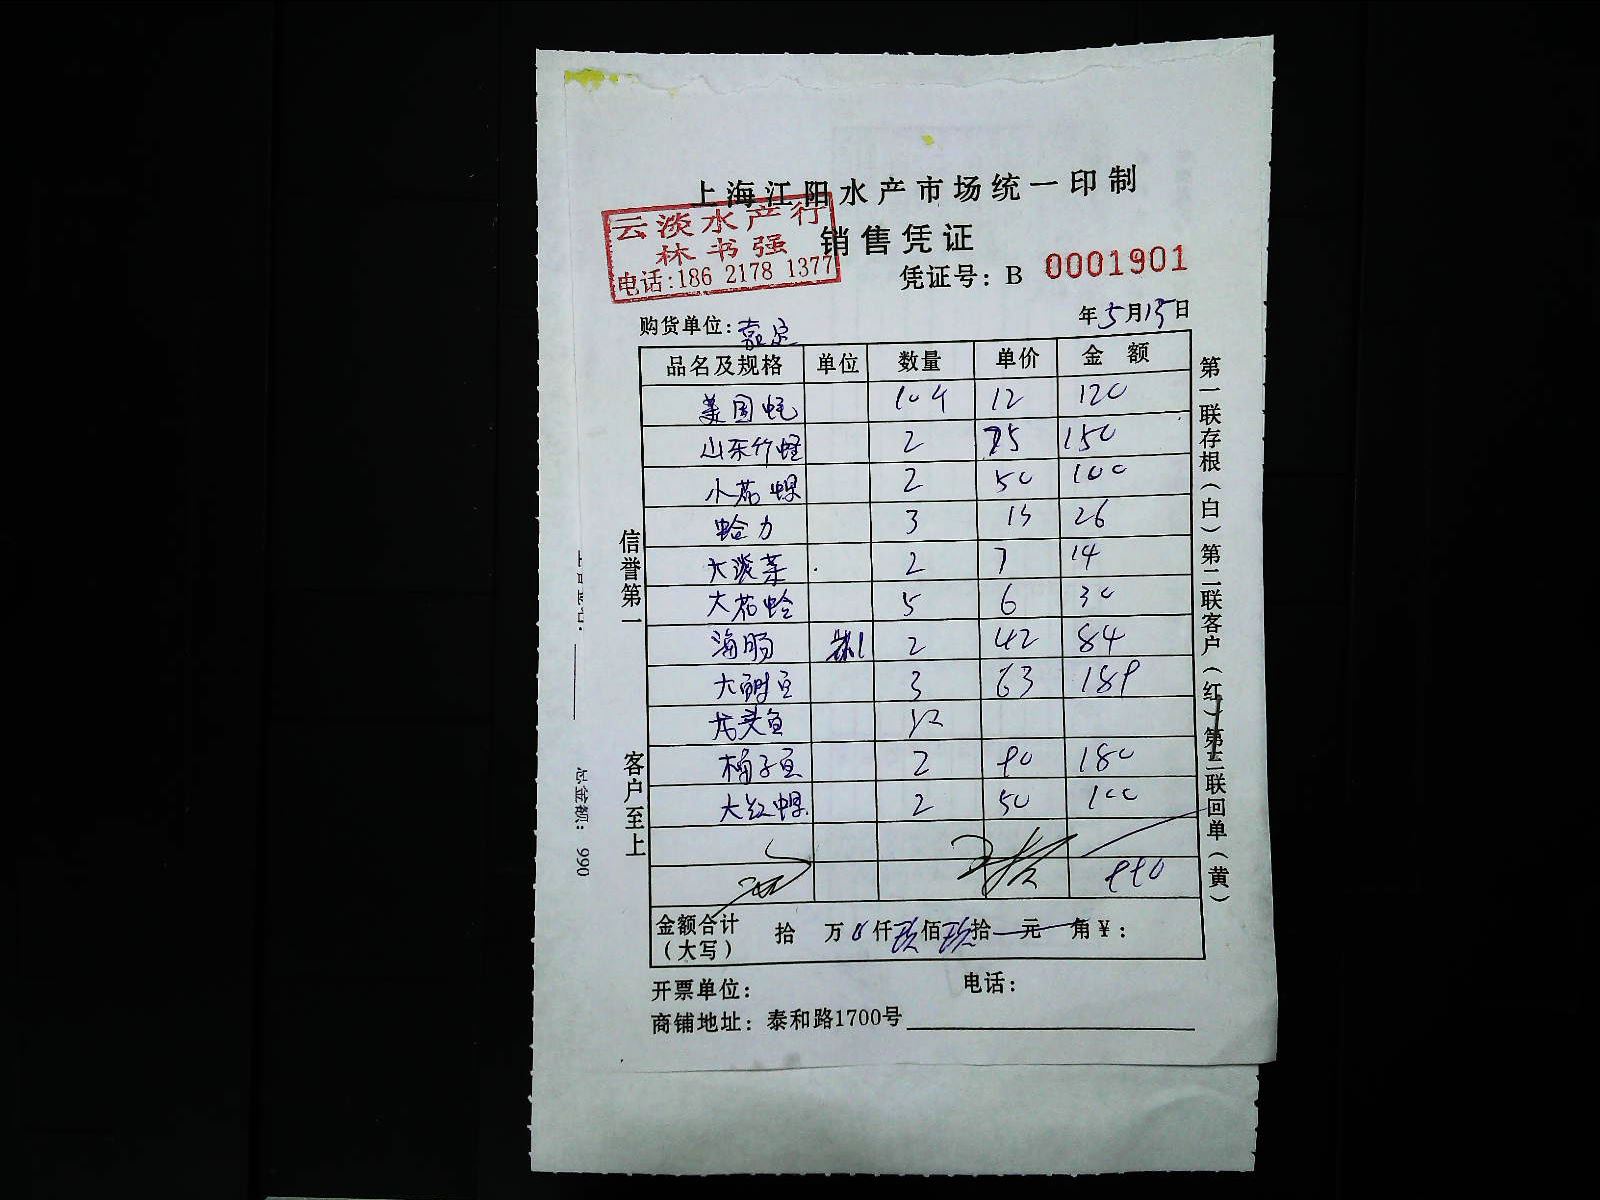 上海江阳水产市场统一印制
云淡水产行
林书强
电话:186 2178 1377
销售凭证
凭证号: B 0001901
购货单位: 嘉定
年5月15日
品名及规格 单位 数量 单价 金额
美国蚝 10个 12 120
山东竹蛏 2 75 150
小花螺 2 50 100
蛤力 3 13 26
大淡菜 2 7 14
大花蛤 5 6 30
海肠 2 42 84
大鲍鱼 3 63 189
龙头鱼
桶子鱼 2 90 180
大红螺 2 50 100
990
金额合计(大写) 拾 万0仟玖佰玖拾 元 角¥:
开票单位:
电话:
商铺地址: 泰和路1700号
信誉第一 客户至上
第一联存根(白)第二联客户(红)第三联回单(黄)
总金额: 990